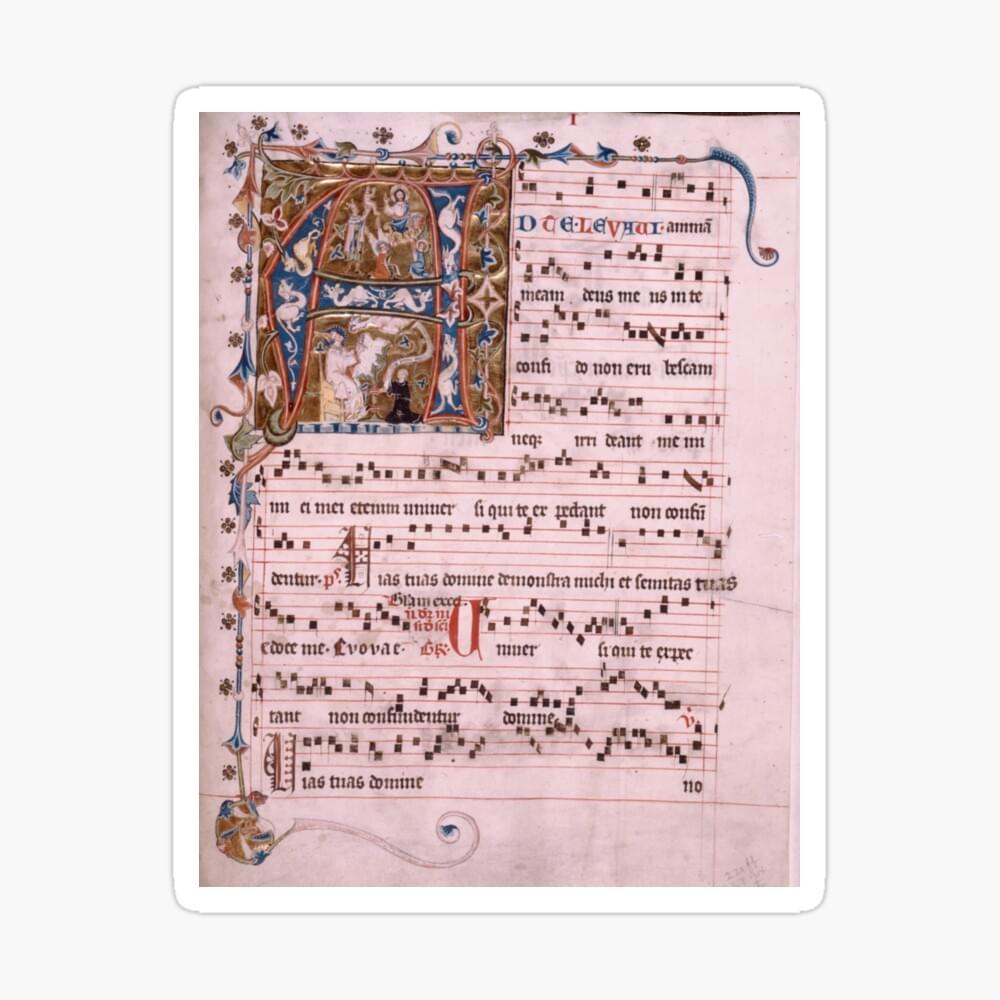 I
AD TE LEVAUI · animā
meam deus me us in te
confi do non eru bescam
neqʒ irri deant me ini
mi ci mei etenim univer si qui te ex pectant non confū
dentur · ps. Uias tuas domine demonstra michi et semitas tuas
edoce me · Evovae · Gr. Univer si qui te expec
tant non confundentur domine V.
Uias tuas domine no